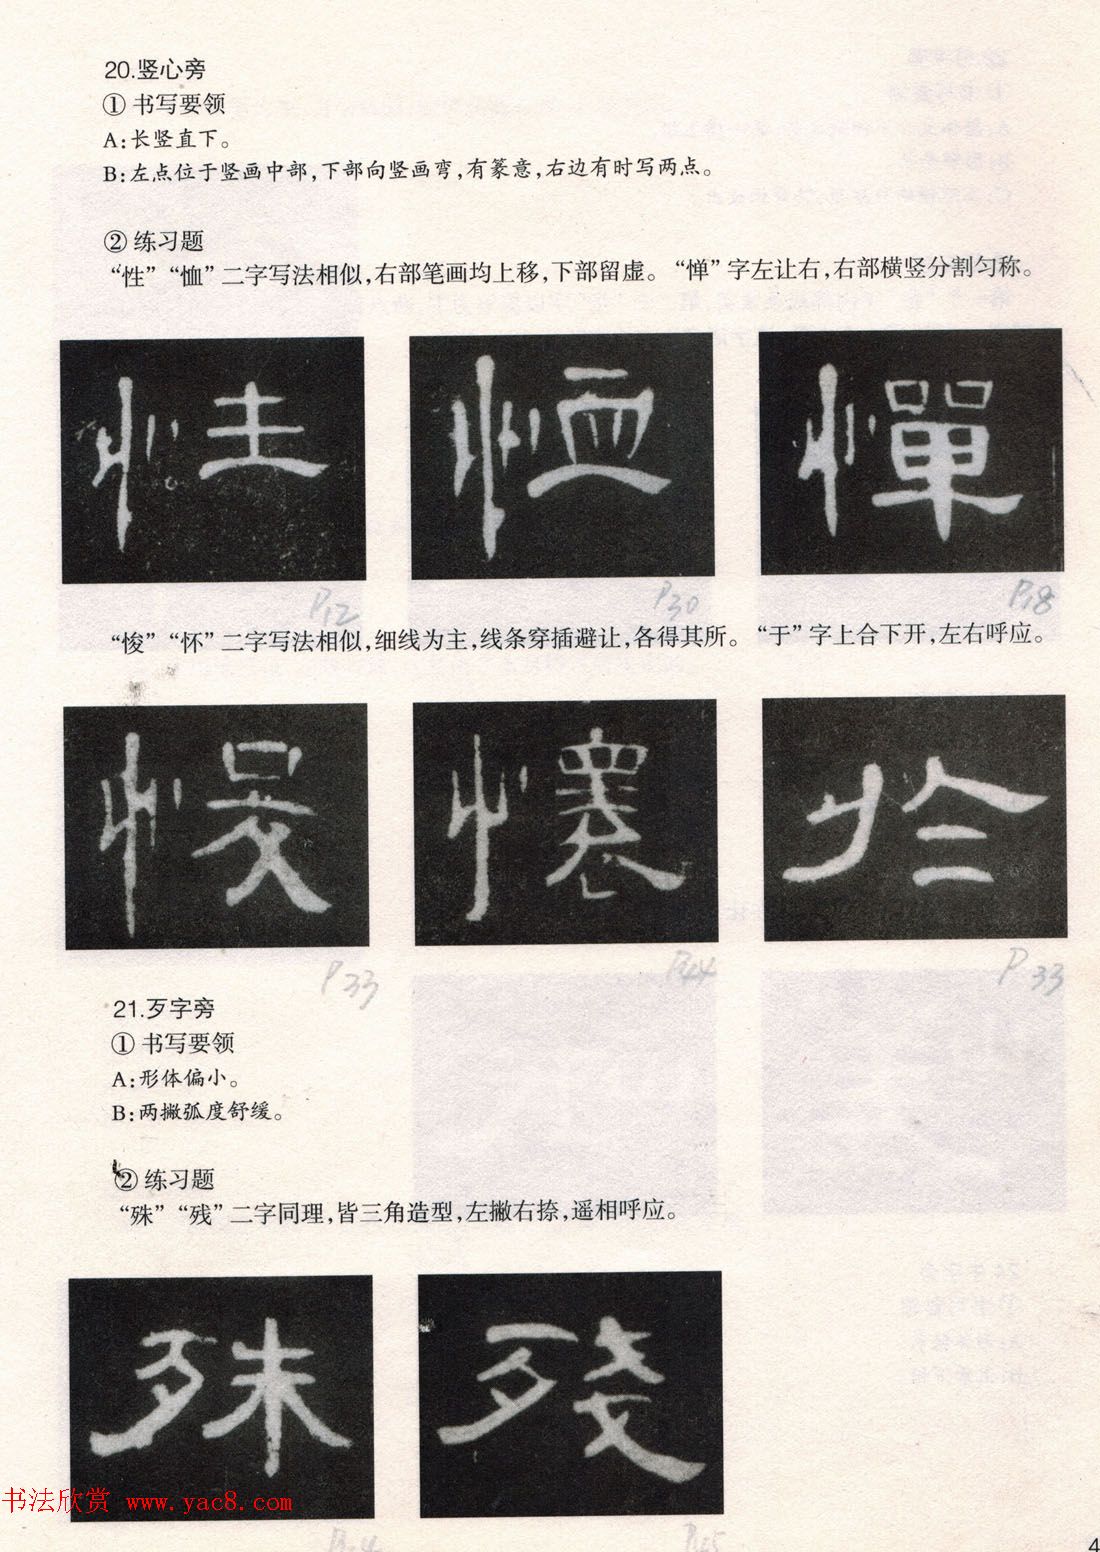 20.竖心旁
① 书写要领
A:长竖直下。
B:左点位于竖画中部,下部向竖画弯,有篆意,右边有时写两点。
② 练习题
“性”“恤”二字写法相似,右部笔画均上移,下部留虚。“惮”字左让右,右部横竖分割匀称。
性 恤 憚
P12 P30 P18
“悛”“怀”二字写法相似,细线为主,线条穿插避让,各得其所。“于”字上合下开,左右呼应。
P33 P44 P33
21.歹字旁
① 书写要领
A:形体偏小。
B:两撇弧度舒缓。
② 练习题
“殊”“残”二字同理,皆三角造型,左撇右捺,遥相呼应。
殊 殘
书法欣赏 www.yac8.com
P45
4